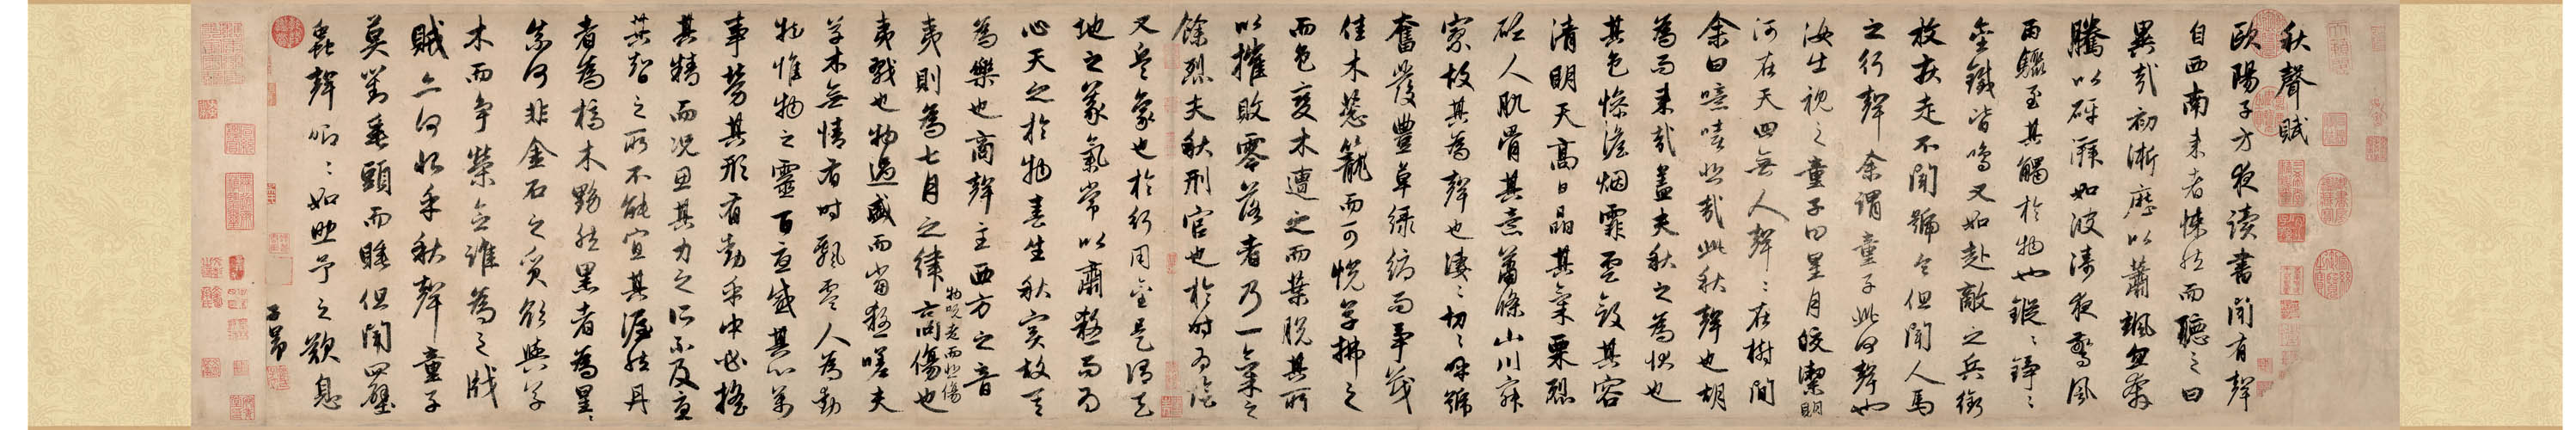 秋聲賦
歐陽子方夜讀書聞有聲
自西南来者悚然而聽之曰
異哉初淅瀝以蕭颯忽奔
騰以砰湃如波濤夜驚風
雨驟至其觸於物也鏦〻錚〻
金鐵皆鳴又如赴敵之兵銜
枚疾走不聞號令但聞人馬
之行聲余謂童子此何聲也
汝出視之童子曰星月皎潔明
河在天四無人聲〻在樹間
余曰噫嘻悲哉此秋聲也胡
為而来哉蓋夫秋之為狀也
其色惨澹烟霏雲斂其容
清明天高日晶其氣栗烈
砭人肌骨其意蕭條山川寂
寥故其為聲也淒〻切〻呼號
奮發豐草緑縟而爭茂
佳木葱籠而可悅草拂之
而色變木遭之而葉脫其所
以摧敗零落者乃一氣之
餘烈夫秋刑官也於時為陰
又兵象也於行用金是謂天
地之義氣常以肅殺而為
心天之於物春生秋實故其
為樂也商聲主西方之音
物既老而悲傷
夷則為七月之律商傷也
夷戮也物過盛而當殺嗟夫
草木無情有時飄零人為動
物惟物之靈百憂感其心萬
事勞其形有動乎中必搖
其精而況思其力之所不及憂
其智之所不能宜其渥然丹
者為槁木黟然黑者為星〻
奈何非金石之質欲與草
木而争榮念誰為之戕
賊亦何恨乎秋聲童子
莫對垂頭而睡但聞四壁
蟲聲唧〻如助予之歎息
子昂